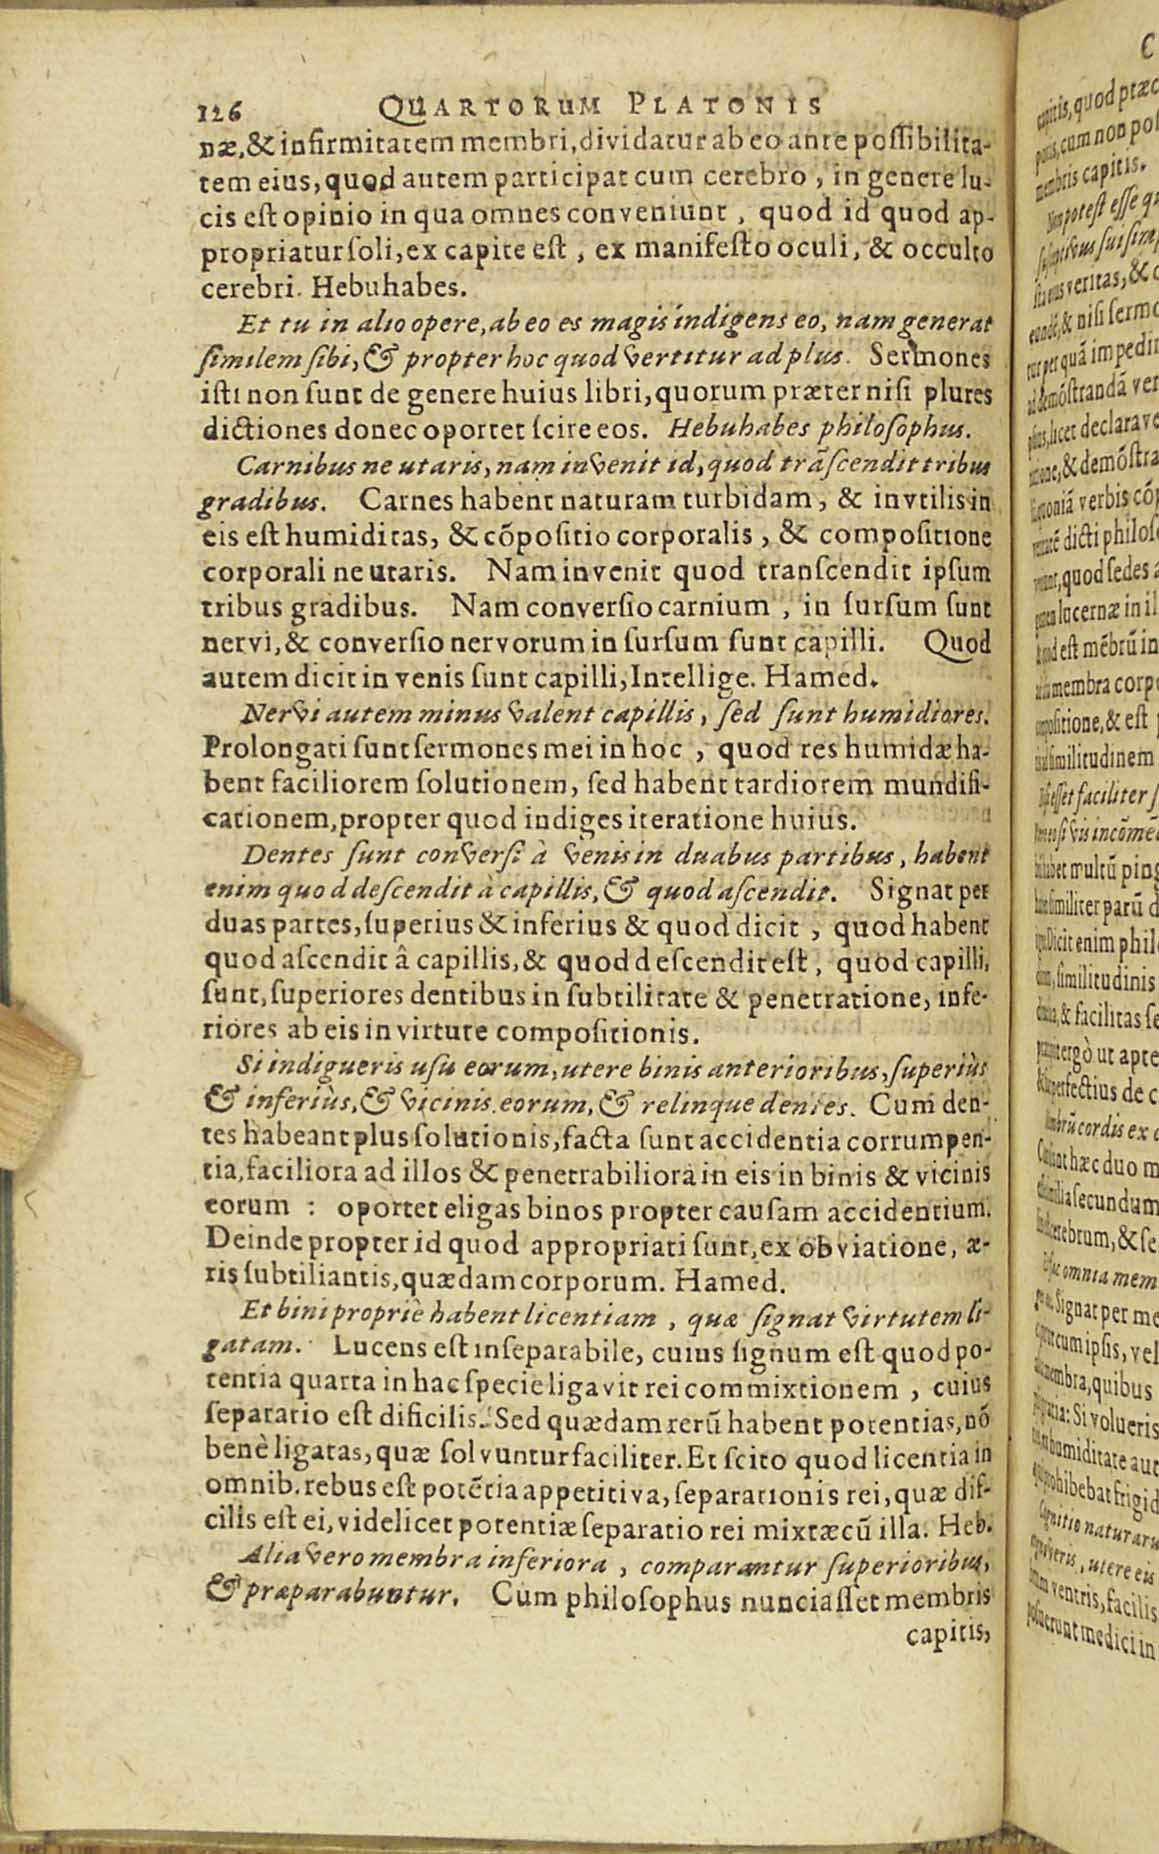 126 QUARTORUM PLATONIS
næ, & infirmitatem membri, dividatur ab eo ante possibilita-
tem eius, quod autem participat cum cerebro, in genere lu-
cis est opinio in qua omnes conveniunt, quod id quod ap-
propriatur soli, ex capite est, ex manifesto oculi, & occulto
cerebri. Hebuhabes.
Et tu in alio opere, ab eo es magis indigens eo, nam generat
similem sibi, & propter hoc quod vertitur ad plus. Sermones
isti non sunt de genere huius libri, quorum præter nisi plures
dictiones donec oportet scire eos. Hebuhabes philosophus.
Carnibus ne utaris, nam invenit id, quod trãscendit tribus
gradibus. Carnes habent naturam turbidam, & invtilis in
eis est humiditas, & cõpositio corporalis, & compositione
corporali ne utaris. Nam invenit quod transcendit ipsum
tribus gradibus. Nam conversio carnium, in sursum sunt
nervi, & conversio nervorum in sursum sunt capilli. Quod
autem dicit in venis sunt capilli, Intellige. Hamed.
Nervi autem minus valent capillis, sed sunt humidiores.
Prolongati sunt sermones mei in hoc, quod res humidæ ha-
bent faciliorem solutionem, sed habent tardiorem mundifi-
cationem, propter quod indiges iteratione huius.
Dentes sunt conversi à venis in duabus partibus, habent
enim quod descendit à capillis, & quod ascendit. Signat per
duas partes, superius & inferius & quod dicit, quod habent
quod ascendit â capillis, & quod descendit est, quod capilli,
sunt, superiores dentibus in subtilitate & penetratione, infe-
riores ab eis in virtute compositionis.
Si indigueris usu eorum, utere binis anterioribus, superiùs
& inferiùs, & vicinis eorum, & relinque dentes. Cum den-
tes habeant plus solutionis, facta sunt accidentia corrumpen-
tia, faciliora ad illos & penetrabiliora in eis in binis & vicinis
eorum : oportet eligas binos propter causam accidentium.
Deinde propter id quod appropriati sunt, ex obviatione, æ-
ris subtiliantis, quædam corporum. Hamed.
Et bini propriè habent licentiam, quæ signat virtutem li-
gatam. Lucens est inseparabile, cuius signum est quod po-
tentia quarta in hac specie ligavit rei commixtionem, cuius
separatio est dificilis. Sed quædam rerũ habent potentias, nõ
benè ligatas, quæ solvuntur faciliter. Et scito quod licentia in
omnib. rebus est potẽtia appetitiva, separationis rei, quæ dif-
cilis est ei, videlicet potentiæ separatio rei mixtæ cũ illa. Heb.
Alia vero membra inferiora, comparantur superioribus,
& præparabuntur. Cum philosophus nunciasset membris
capitis,
C
capitis, quod præc
cum non pos
membris capitis.
Non potest esse
veritas, &
& nisi sermo
per quã impedi
demõstrandã ver
licet declara ve
& demõstra
verbis cõ
dicti philos
quod sedes a
lucernæ in il
est mẽbrũ in
membra corp
& est
similitudinem
esset faciliter
multũ ping
similiter parũ d
Dicit enim phil
similitudinis
& facilitas se
ergò ut apte
perfectius de c
cordis ex
hæc duo m
secundum
cerebrum, & se
omnia mem
Signat per me
cum ipsis, vel
membra, quibus
Si volueris
humiditate aut
prohibebat frigid
utere eis
ventris, facilis
medici in